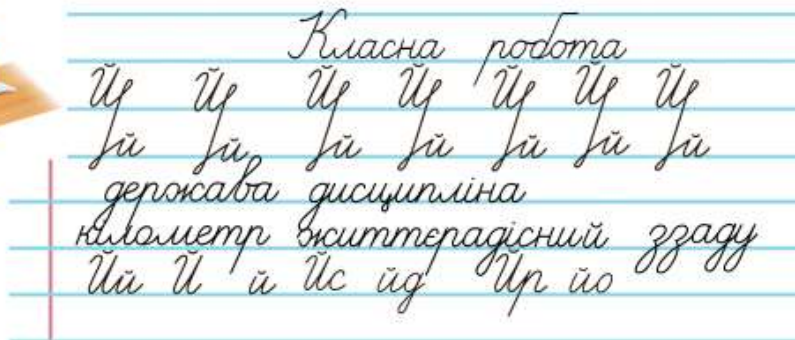 Класна робота
Й Й Й Й Й Й Й
й й й й й й й
держава дисципліна
кілометр життєрадісний ззаду
Йй Й й Йс йд Йр йо